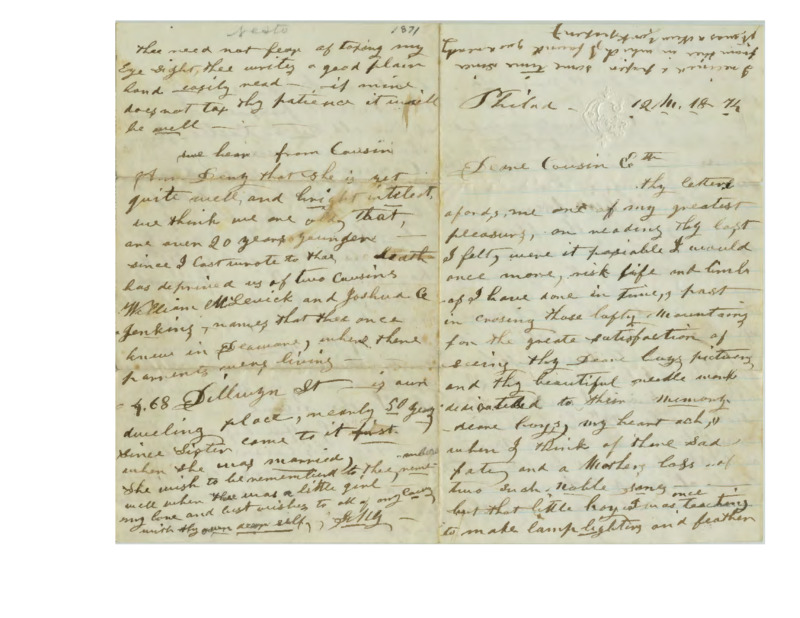 Philad - 12 M. 18 - 74
Deare Cousin E th
thy letters
afords, me one of my greatest
pleasure, on reading thy last
I felt, were it posiable I would
once more, risk life and limbs
as I have done in time,s past
in crosing those lofty Mountains
for the great satisfaction of
seeing thy Deare boys picture,
and thy beautiful needle work
dedicated to their memory
deare boys, my heart ach,s
when I think of there sad
fate, and a Mothers loss of
two such, noble sons once
but that little boy I was teaching
to make lamplighters and feather
1871
thee need not fear of taxing my
Eye Sight, thee writes a good plain
hand easily read - if mine
does not tax thy patience it will
be well -
we hear from Cousin
that She is yet
quite well, and bright intelect,
we think we are old, that,
are over 20 years younger
since I last wrote to thee death
has deprived us of two Cousins
William and Joshua
Jenkins, names that thee once
knew in Delaware, where there
parrents were living -
468 Dillwyn St - is our
dweling place, nearly 50 years
since Sister come to it first.
when She was married,
She wish to be rememberd to thee,
well when thee was a little girl
my love and best wishes to all of my
with thy own dear self,
from thee in which I found
I received a paper some time since